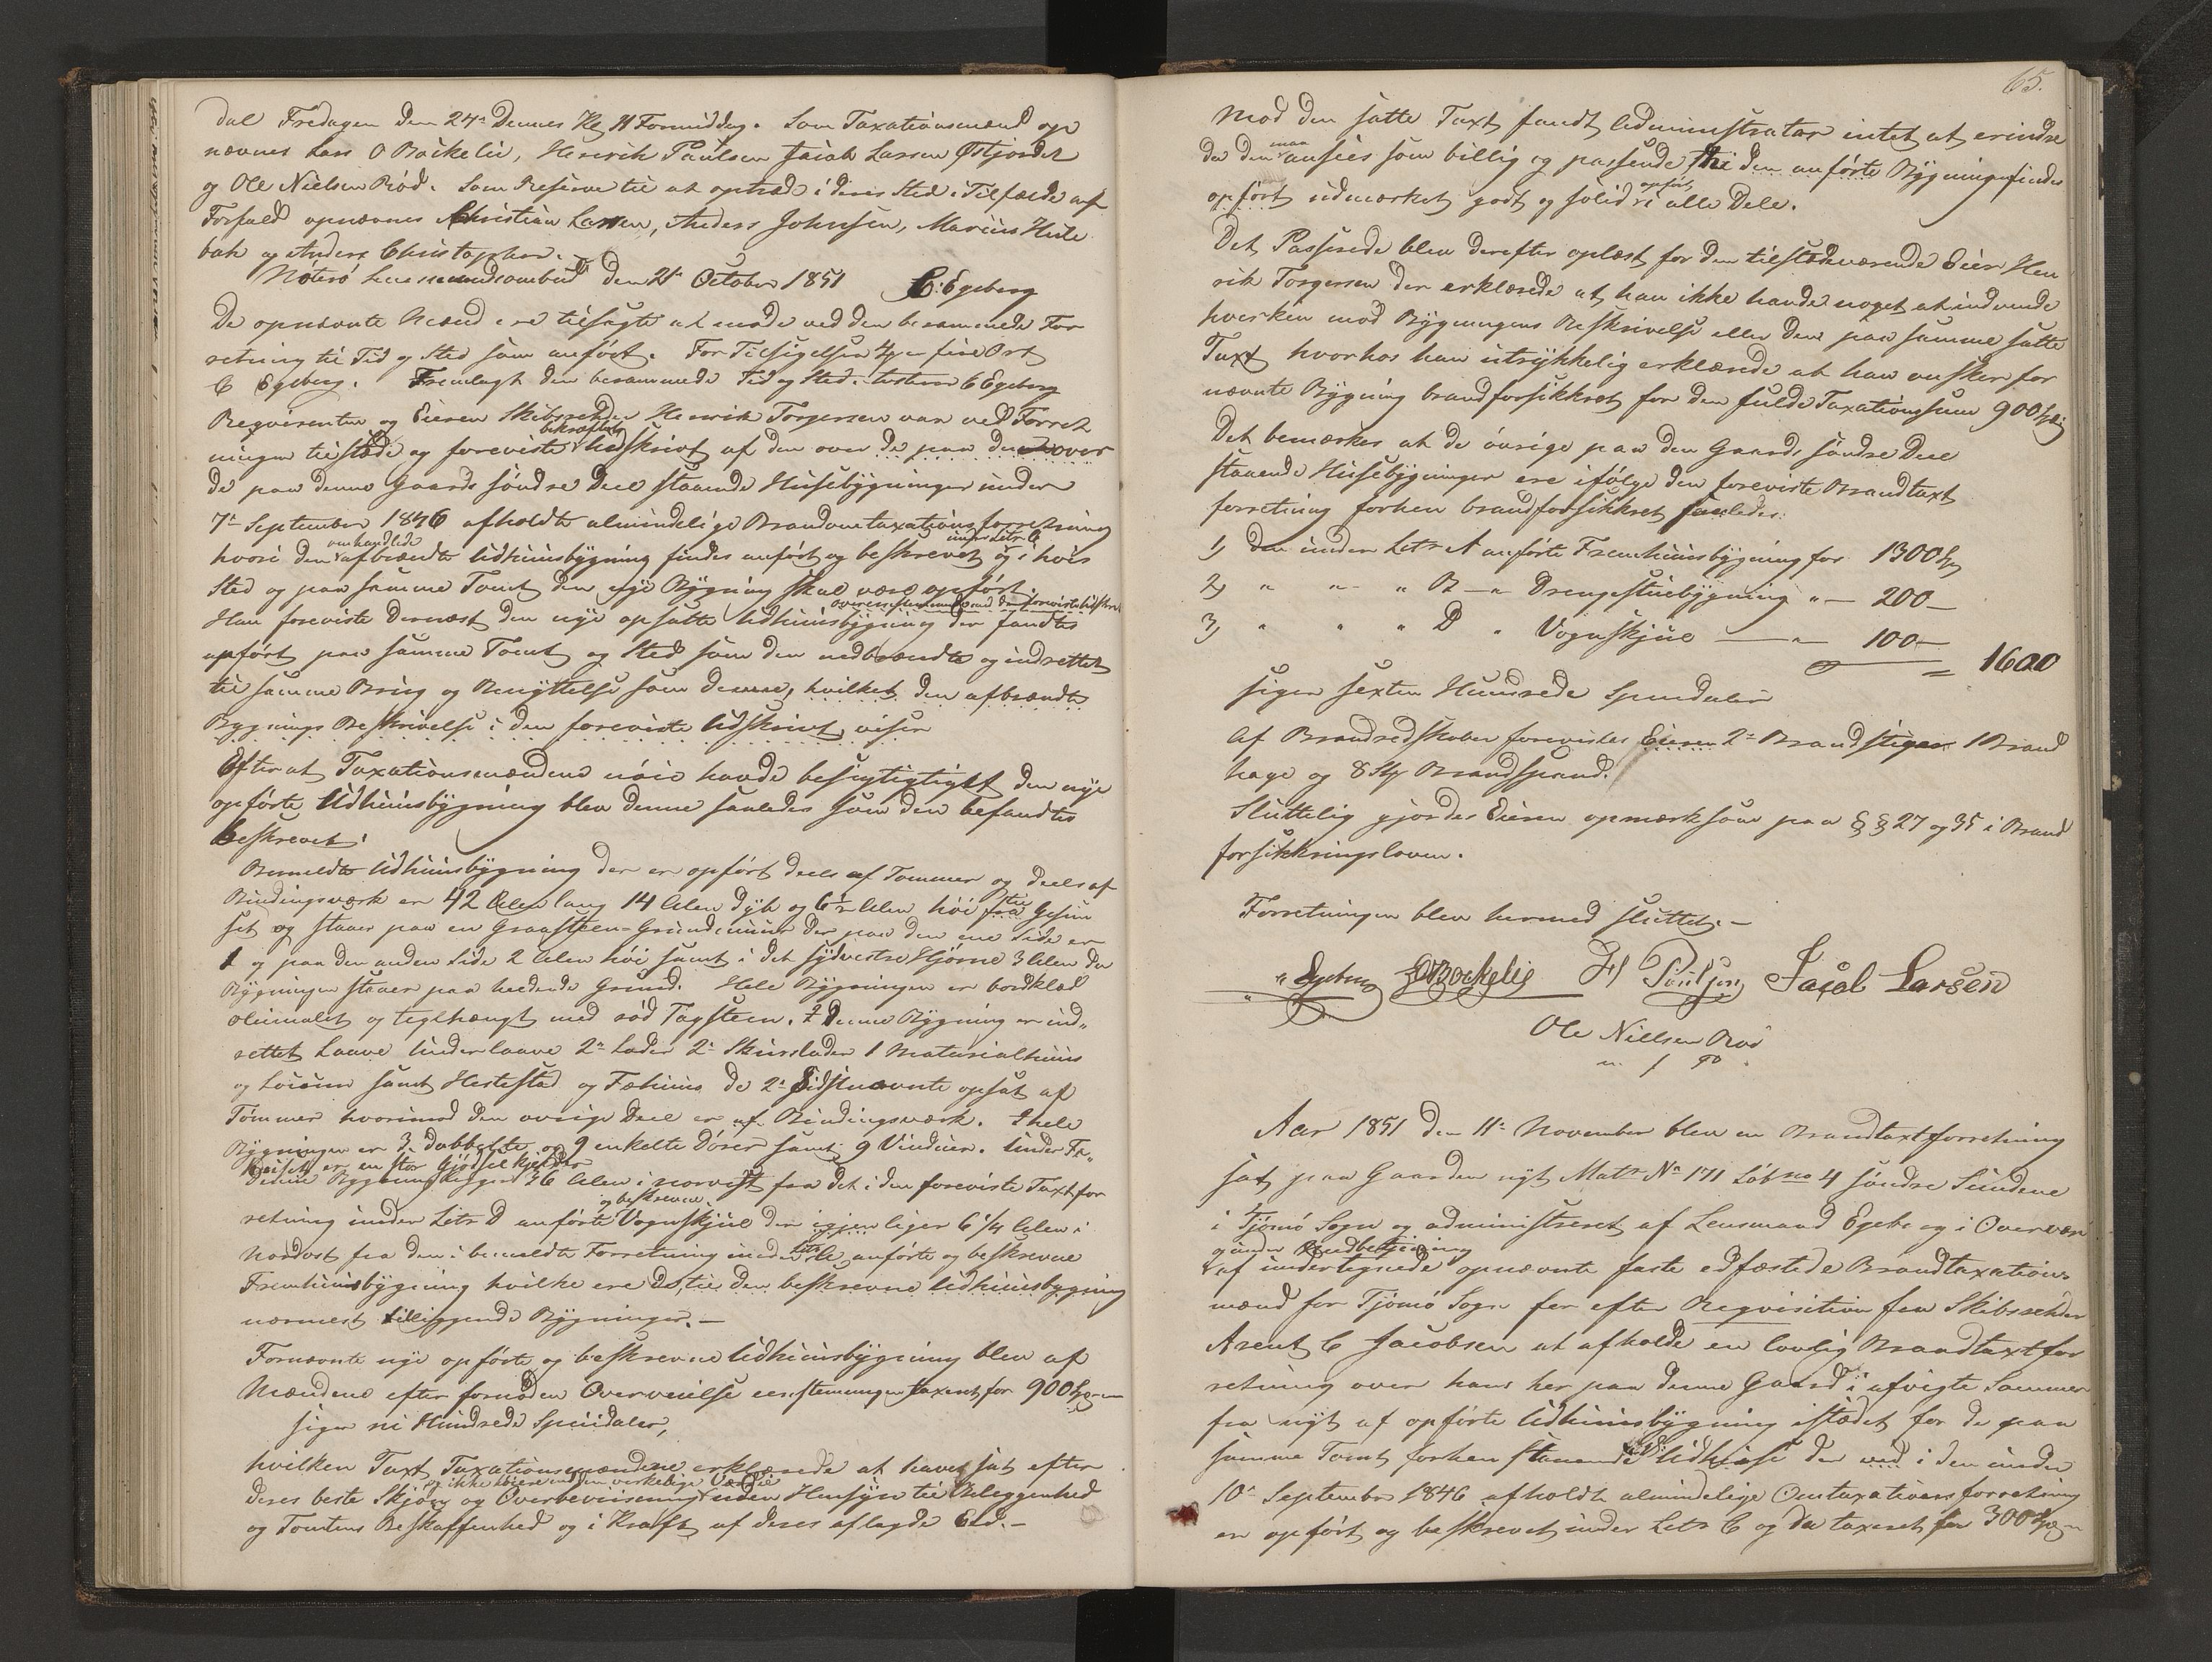 dal Fredagen den 24de Dennes Kl 11 Formiddag. Som Taxationsmænd op
nævnes Lars O Bockelie, Henrik Paulsen Jacob Larsen Østjordet
og Ole Nielsen Röd. Som Reserve til at optræde i deres Sted i Tilfælde af
Forfald opnævnes Christian Larsen, Anders Johnsen, Marius Heste
bak og Anders Christopher.
Nöterö Lensmandsombud den 21de October 1851 C. Egeberg
De opnævnte Mænd ere tilsagte at møde ved den berammede For
retning til Tid og Sted som anfört. For Tilsigelsen 4 er fire Ort
C Egeberg. Fremlagt den berammede Tid og Sted. testerer C Egeberg
Reqvirenten og Eieren Skibsrehder Henrik Torgersen var ved Forret
ningen tilstæde og foreviste bekræftet Udskrivt af den over de paa den over
de paa denne Gaards söndre Deel staaende Huusebygninger under
7de September 1846 afholdte almindelige Brandomtaxationsforretning
hvori den omhandlede afbrændte Udhuusbygning findes anfört og beskrevet under Litr C og i hvis
Sted og paa samme Tomt den nye Bygning skal være opfört.
Han foreviste dernæst den nye opsatte Udhuusbygning der overensstemmende med den foreviste Udskrivt fandtes
opfört paa samme Tomt og Sted som den nedbrændte og indrettet
til samme Brug og Benyttelse som denne, hvilket den afbrændte
Bygnings Beskrivelse i den foreviste Udskrivt viser
Efterat Taxationsmændene nöie havde besigtigtigt den nye
opförte Udhuusbygning blev denne saaledes som den befandtes
beskrevet:
Bemeldte Udhuusbygning der er opfört deels af Tømmer og deels af
Bindingsværk er 42 Alen lang 14 Alen dyb og 6½ Alen höi til fra Gesim
set og staaer paa en Graasteen-Grundmuur der paa den ene Side er
1 og paa den anden Side 2 Alen höi samt i det sydvestre Hjörne 3 Alen da
Bygningen staaer paa heldende Grund. Hele Bygningen er bordklæd
oliemalet og teglhængt med röd Tagsteen. I denne Bygning er ind-
rettet Laave Underlaave 2de Lader 2de Skurlader 1 Materialhuus
og Loirum samt Hestestald og Fæhuus de 2de Sidstnævnte opsat af
Tömmer hvorimod den övrige Deel er af Bindingsværk. I hele
Bygningen er 3 dobbelte og 9 enkelte Dörer samt 9 Vinduer. Under Fæ-
huuset er en stor Gjödselkjelder
Denne Bygning ligger 36 Alen i norvest fra det i den foreviste Taxtfor
retning under Litr D anförte og beskrevne Vognskjul der igjen liger 6¼ Alen i
Nordost fra den i bemeldte Forretning under Litr A anförte og beskrevne
Fremhuusbygning hvilke ere de, til den beskrevne Udhuusbygning
nærmest tilliggende Bygninger.—
Fornævnte nye opförte og beskrevne Udhuusbygning blev af
Mændene efter fornöden Overveielse eenstemmigen taxeret for 900 Spd
siger ni Hundrede Speciedaler,
hvilken Taxt Taxationsmændene erklærede at have sat efter
deres beste Skjön og Overbeviisning og ikke höiere end den virkelige Værdie uden Hensyn til Beleggenhed
og Tomtens Beskaffenhed og i Kraft af deres aflagde Eed.—
65.
Mod den satte Taxt fandt Administrator intet at erindre
da den maa ansees som billig og passende, thi den anförte Bygning findes
opfört udmærket godt og solid opfört i alle Dele.
Det Passerede blev derefter oplæst for den tilstædeværende Eier Hen
rik Torgersen der erklærede at han ikke havde noget at indvende
hverken mod Bygningens Beskrivelse eller den paa samme satte
Taxt hvorhos han udtrykkelig erklærede at han ønsker for
nævnte Bygning brandforsikkret for den fulde Taxationssum 900 Spd
Det bemærkes at de övrige paa den Gaards söndre Deel
staaende Huusebygninger ere ifölge den foreviste Brandtaxt
forretning forhen brandforsikkret saaledes:
1) den under Litr A anförte Fremhuusbygning for 1300 Spd
2) " " " B — " Drengestuebygning " — 200 —
3) " " " D " Vognskjul — " — 100 —
= 1600
siger sexten Hundrede Speciedaler
Af Brandredskaber forevistes Eieren 2de Brandstiger 1 Brand
hage og 8 Stk Brandspand.
Sluttelig gjordes Eieren opmærksom paa §§ 27 og 35 i Brand
forsikkringsloven.
Forretningen blev hermed sluttet.—
C Egeberg L O Bockelie H Poulsen Jacob Larsen
Ole Nielsen Röd
m f P
Aar 1851 den 11te November blev en Brandtaxtforretning
sat paa Gaarden nyt Matr No 171 Löb no 4 söndre Sundene
i Tjömö Sogn og administreret af Lensmand Egeberg i Overvær
og under Medbetjening af undertegnede opnævnte faste edfæstede Brandtaxations
mænd for Tjömö Sogn for efter Reqvisition fra Skibsrehder
Arent C Jacobsen at afholde en lovlig Brandtaxtfor
retning over hans her paa denne Gaard i afvigte Sommer
fra nyt af opförte Udhuusbygning istædet for de paa
samme Tomt forhen staaende Udhuuse der ved i den under
10de September 1846 afholdte almindelige Omtaxationsforretning
er opfört og beskrevet under Litr C og da taxeret for 300 Spd